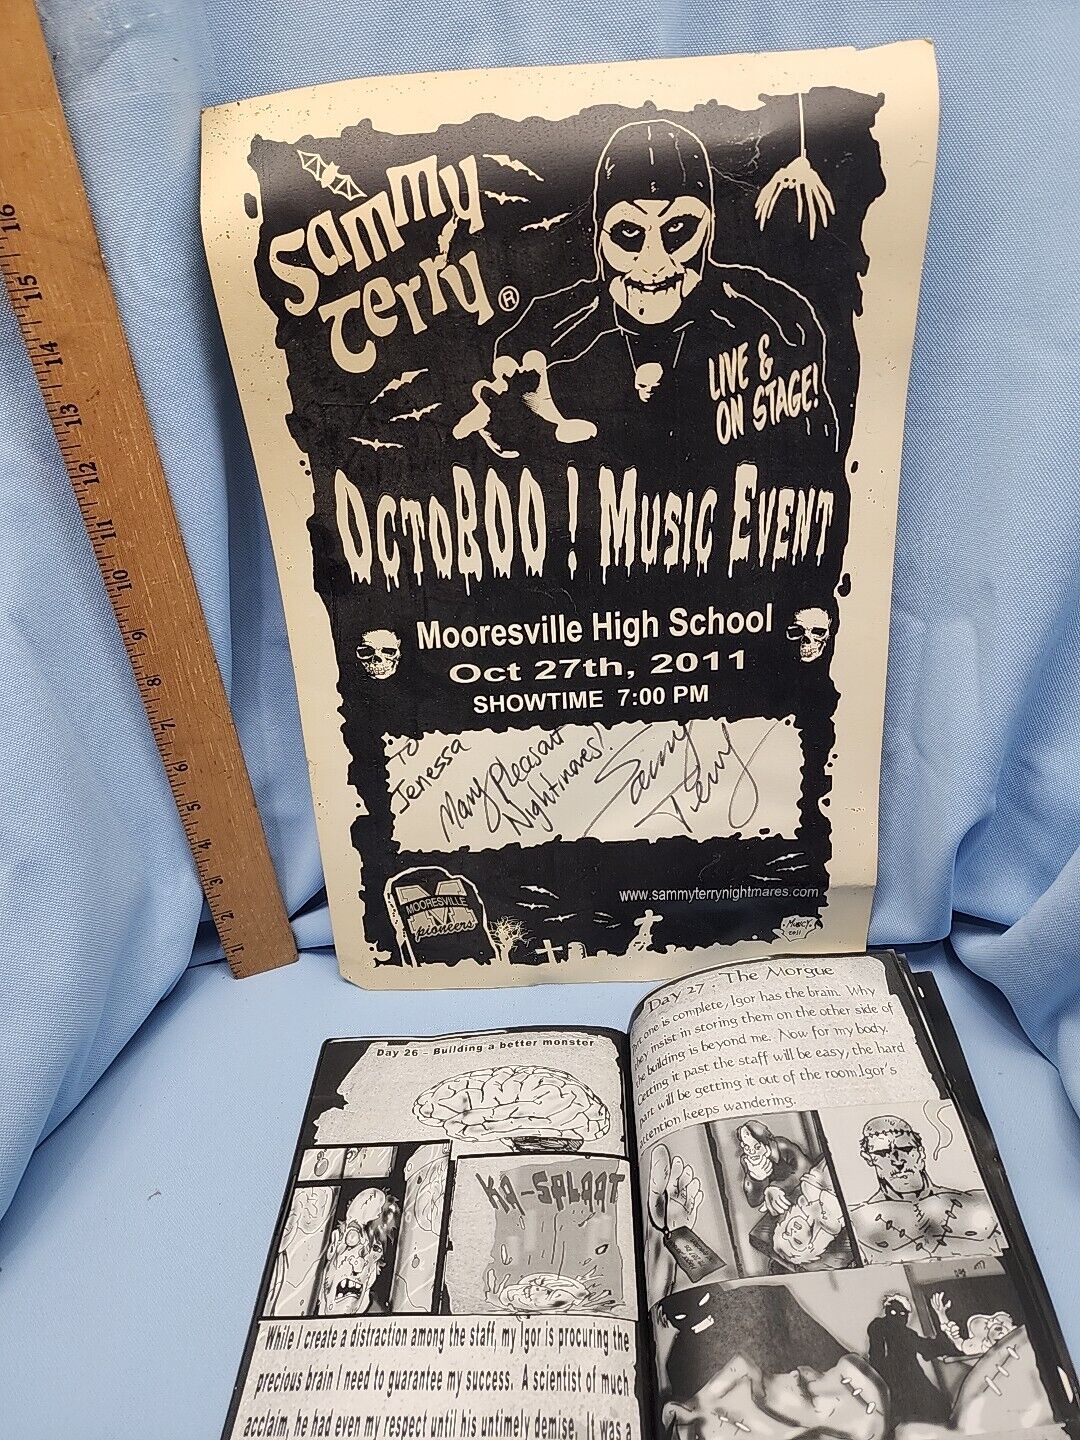 Sammy
Terry ®
LIVE &
ON STAGE!
OCTOBOO! MUSIC EVENT
Mooresville High School
Oct 27th, 2011
SHOWTIME 7:00 PM
To
Jenessa
Many Pleasant
Nightmares!
Sammy
Terry
www.sammyterrynightmares.com
M
MOORESVILLE
pioneers
2011
16
15
14
13
12
11
10
9
8
7
6
5
4
3
2
1
Day 26 - Building a better monster
KA-SPLAAT
While I create a distraction among the staff, my Igor is procuring the
precious brain I need to guarantee my success. A scientist of much
acclaim, he had even my respect until his untimely demise. It was a
Day 27 - The Morgue
one is complete, Igor has the brain. Why
they insist in storing them on the other side of
the building is beyond me. Now for my body.
Getting it past the staff will be easy, the hard
part will be getting it out of the room. Igor's
attention keeps wandering.